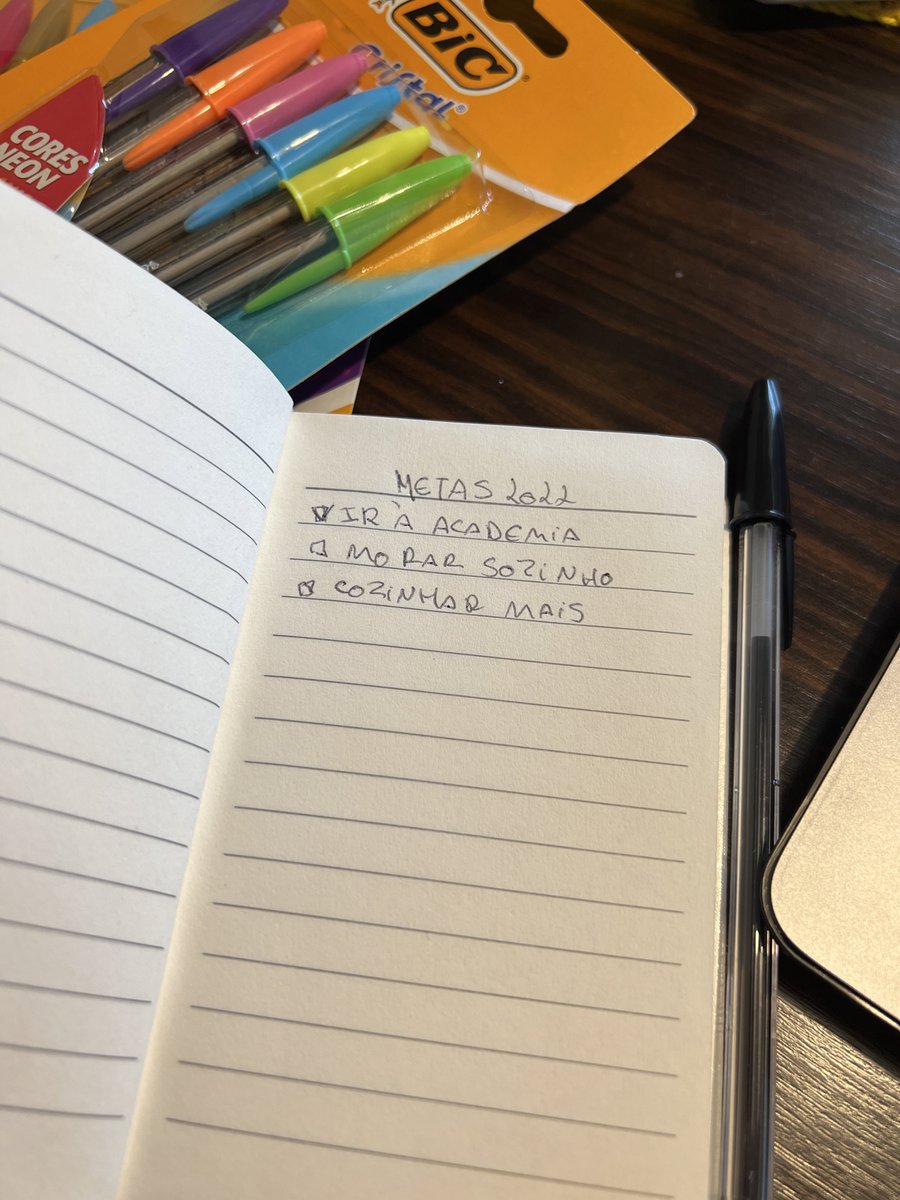 BIC®
Cristal®
CORES
NEON
METAS 2022
☑ IR À ACADEMIA
☐ MORAR SOZINHO
☒ COZINHAR MAIS